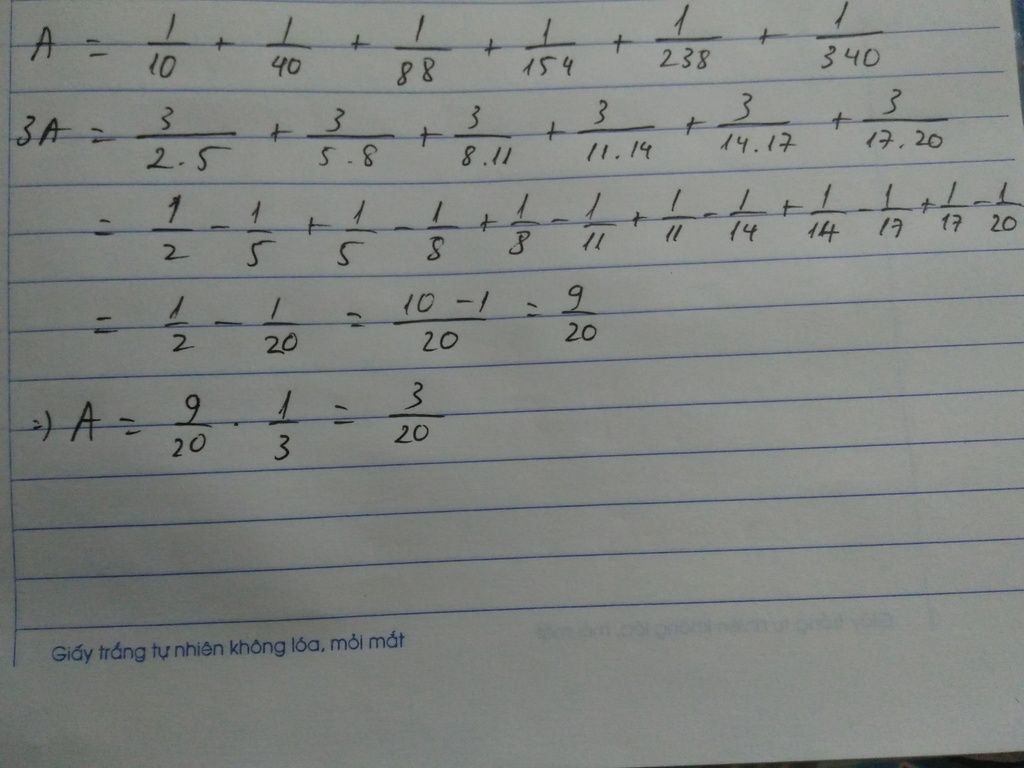 A = 1/10 + 1/40 + 1/88 + 1/154 + 1/238 + 1/340
3A = 3/2.5 + 3/5.8 + 3/8.11 + 3/11.14 + 3/14.17 + 3/17.20
= 1/2 - 1/5 + 1/5 - 1/8 + 1/8 - 1/11 + 1/11 - 1/14 + 1/14 - 1/17 + 1/17 - 1/20
= 1/2 - 1/20 = 10 - 1/20 = 9/20
=) A = 9/20 . 1/3 = 3/20
Giấy trắng tự nhiên không lóa, mỏi mắt